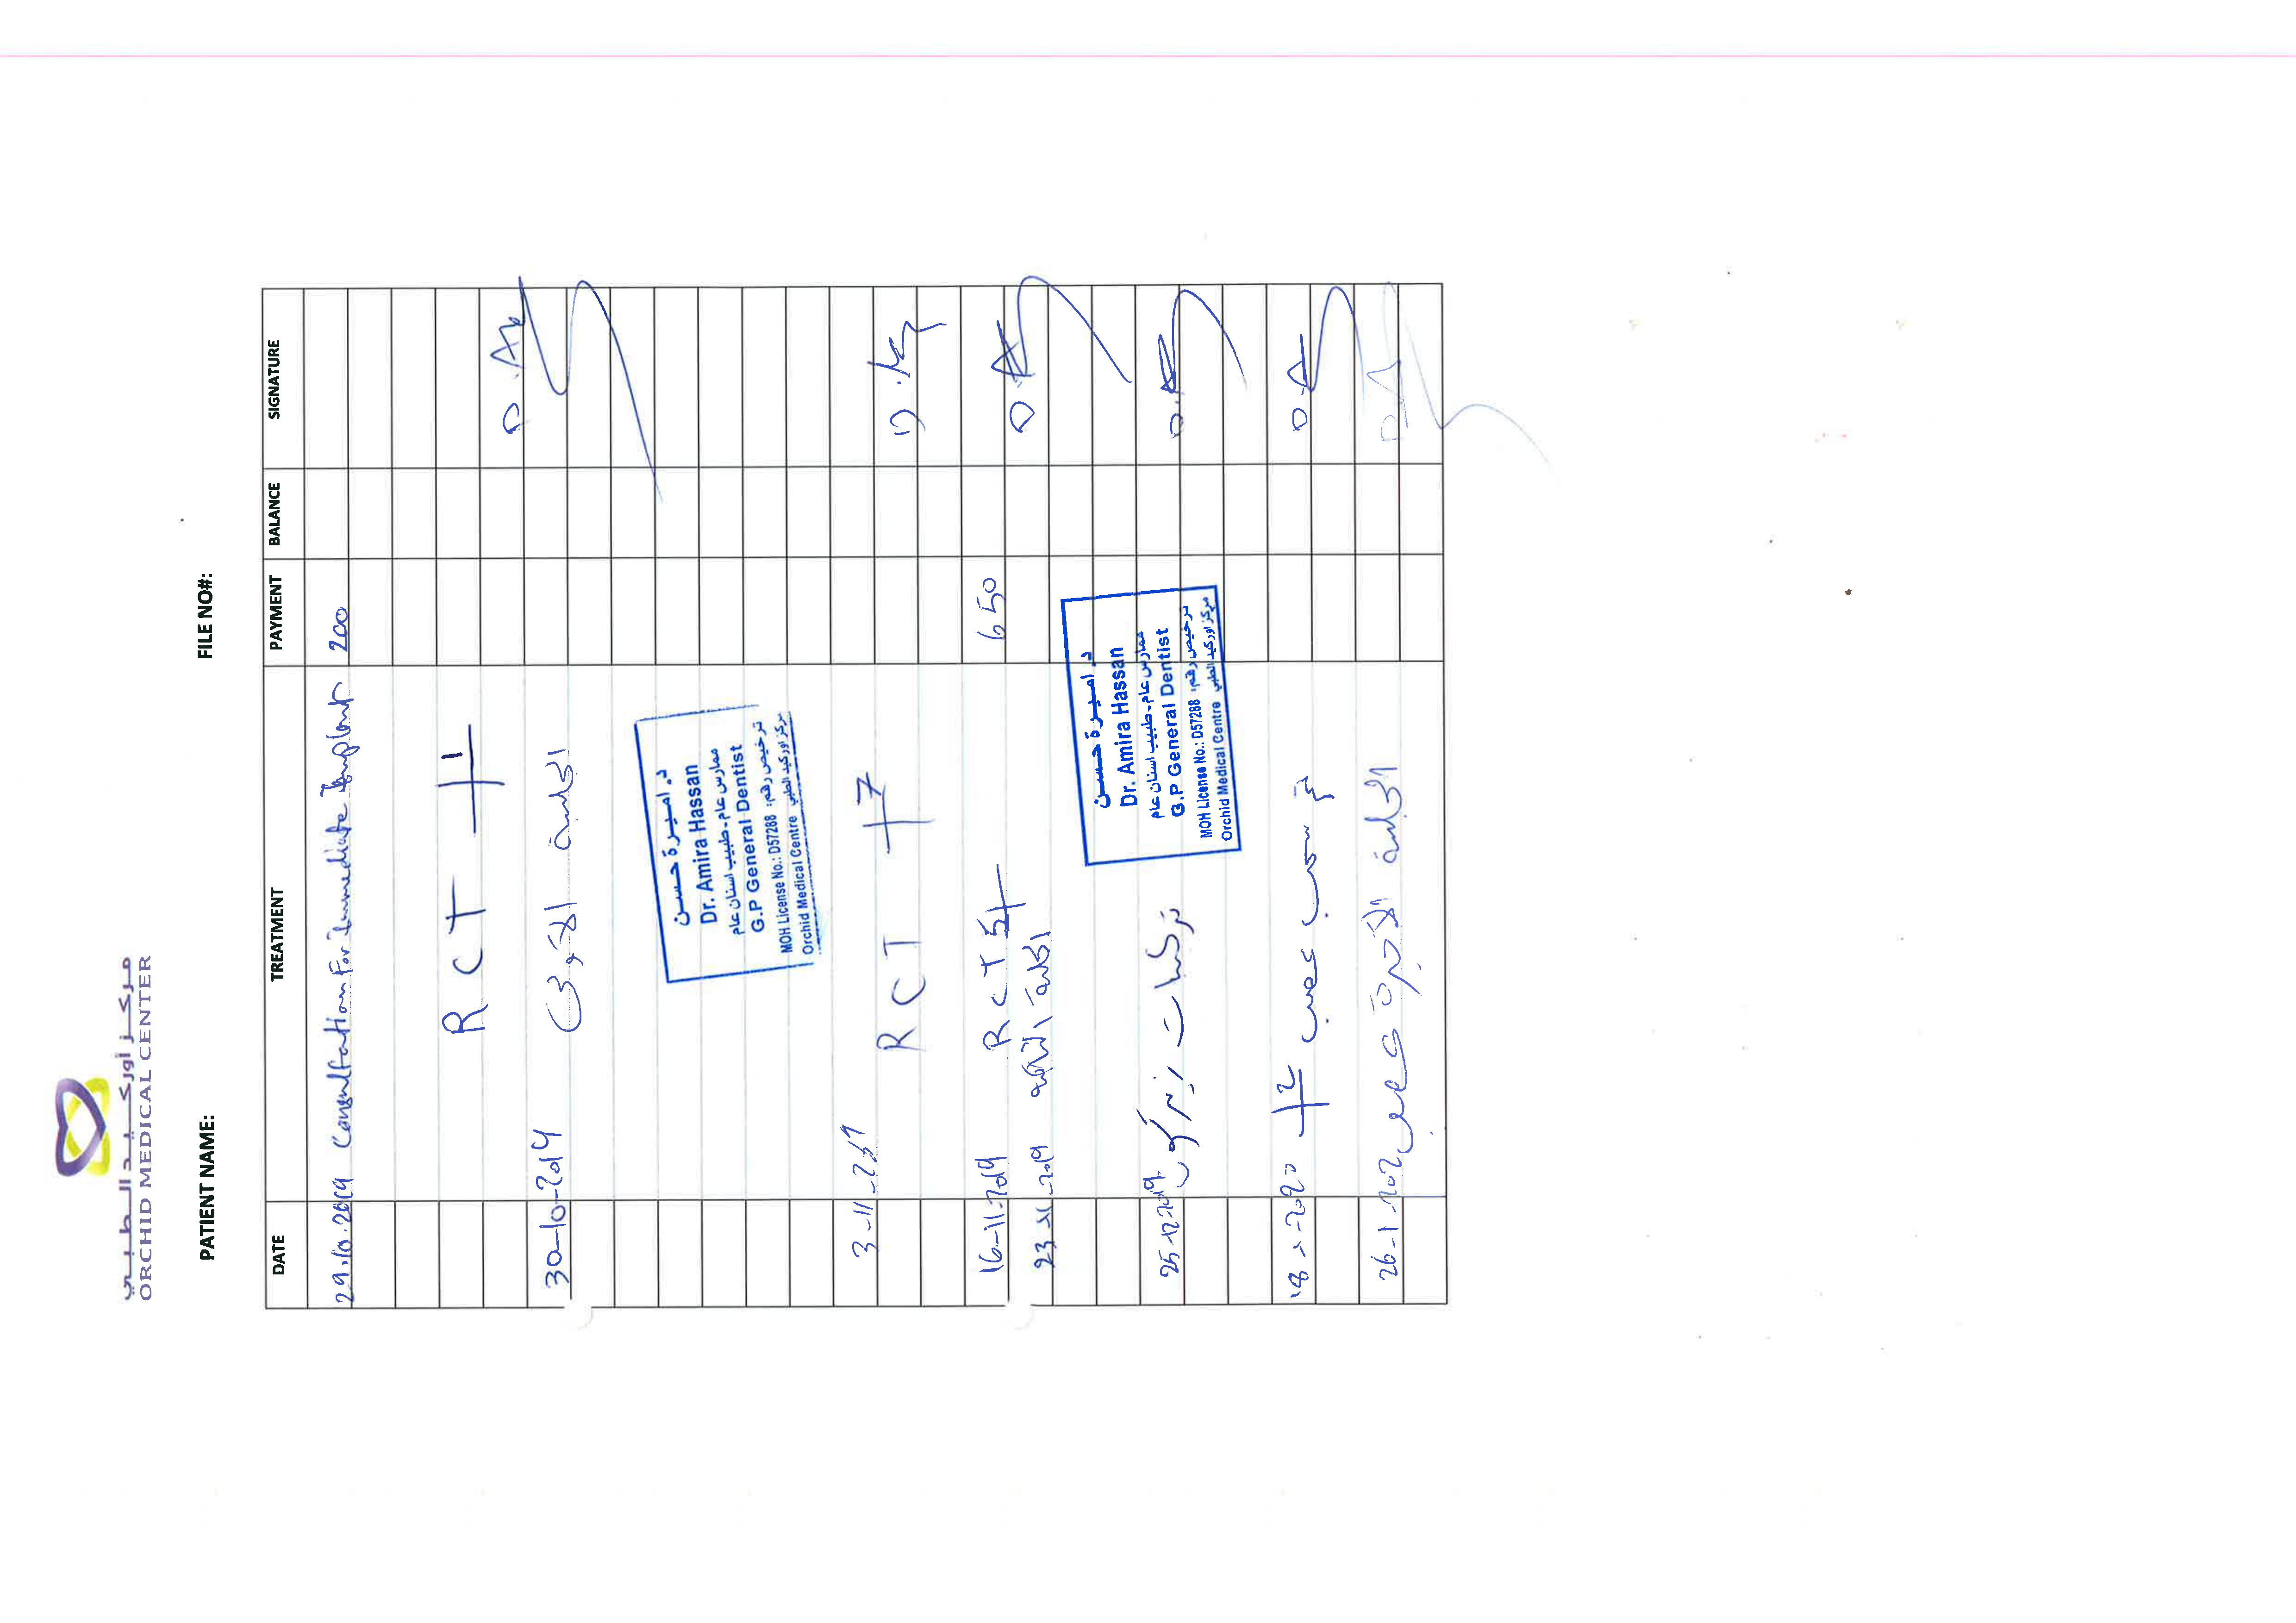 مركز أوركيد الطبي
ORCHID MEDICAL CENTER
PATIENT NAME: FILE NO#:
DATE TREATMENT PAYMENT BALANCE SIGNATURE
29.10.2019 Consultation For Immediate Implant 200
RCT 1
30-10-2019 الجلسة الأولى
د. اميرة حسن
Dr. Amira Hassan
ممارس عام - طبيب اسنان عام
G.P General Dentist
MOH License No.: D57288 ترخيص رقم:
Orchid Medical Centre مركز اوركيد الطبي
3-11-2019
RCT 7
16-11-2019 RCT 5 650
23-11-2019 الجلسة الثانية
د. اميرة حسن
Dr. Amira Hassan
ممارس عام - طبيب اسنان عام
G.P General Dentist
MOH License No.: D57288 ترخيص رقم:
Orchid Medical Centre مركز اوركيد الطبي
25-12-2019 تركيبات زيركون
2 تم سحب عصب
26-1-202 الجلسة الأخيرة